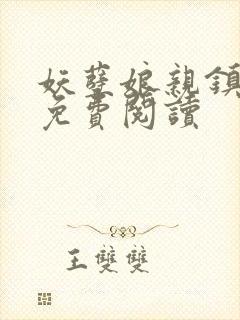 妖孽娘親鎮
免費閱讀
王雙雙